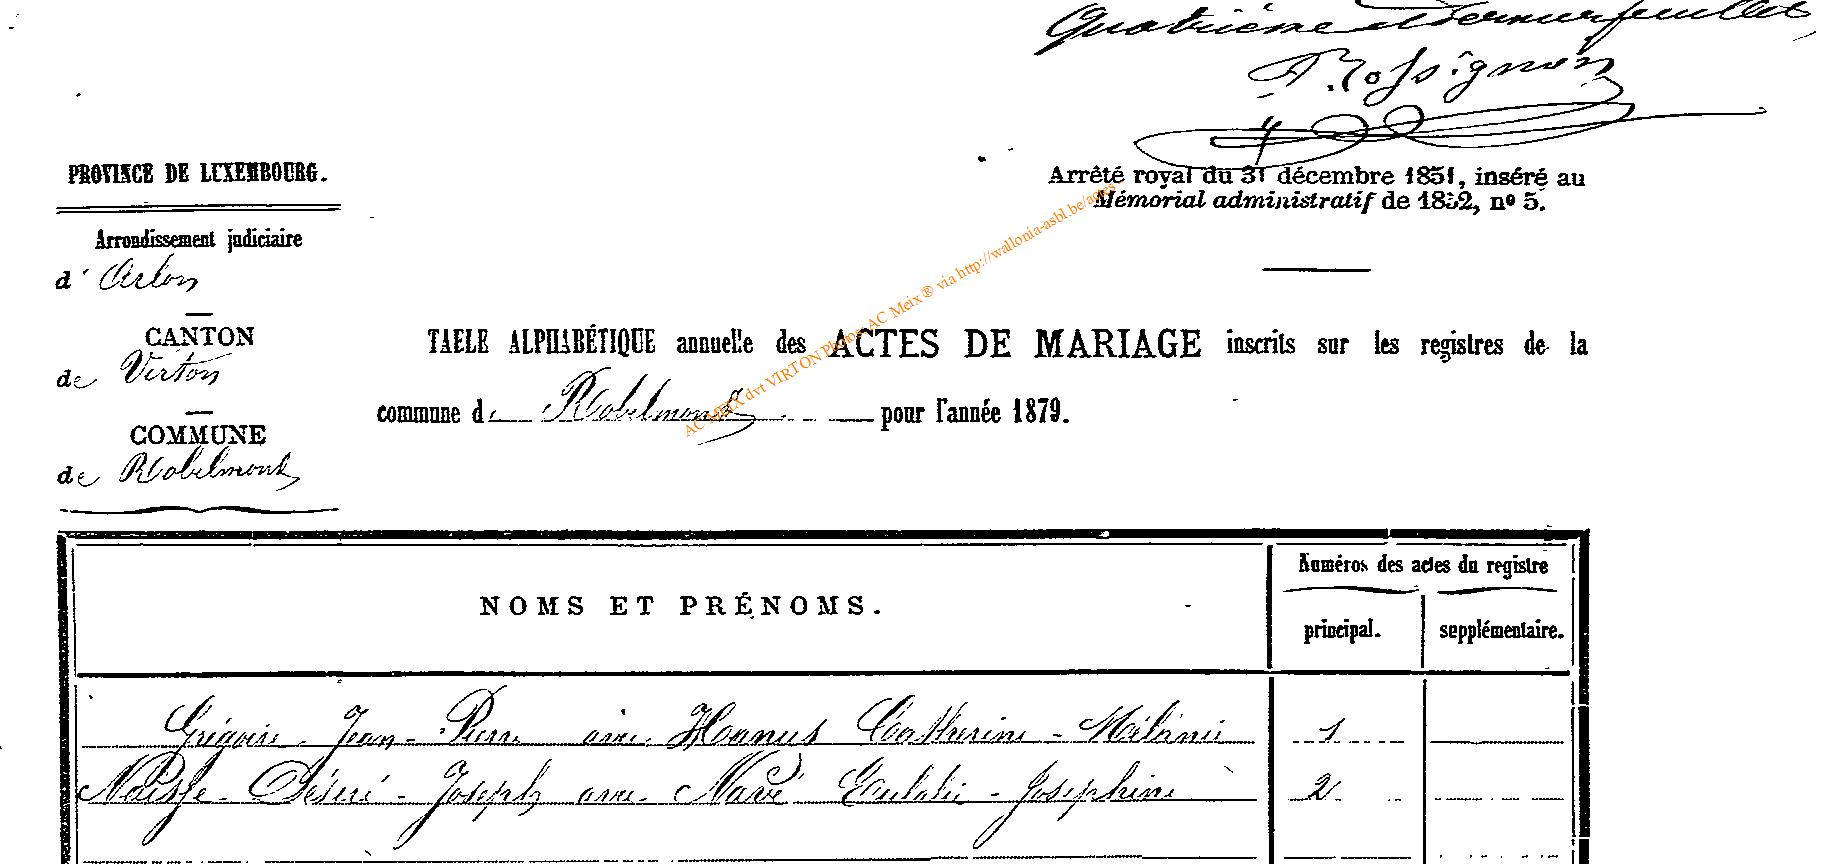 Quatrième et dernier feuillet,
Rossignon
PROVINCE DE LUXEMBOURG.
Arrêté royal du 31 décembre 1851, inséré au
Mémorial administratif de 1852, nº 5.
Arrondissement judiciaire
d' Arlon
CANTON
de Virton
COMMUNE
de Robelmont
TABLE ALPHABÉTIQUE annuelle des ACTES DE MARIAGE inscrits sur les registres de la
commune de Robelmont pour l'année 1879.
AC MEIX dvt VIRTON Photos AC Meix ® via http://wallonia-asbl.be/actes
NOMS ET PRÉNOMS.
Numéros des actes du registre
principal. supplémentaire.
Grégoire - Jean-Pierre avec Hanus Catherine-Mélanie 1
Désiré-Joseph avec Navé Eulalie-Joséphine 2